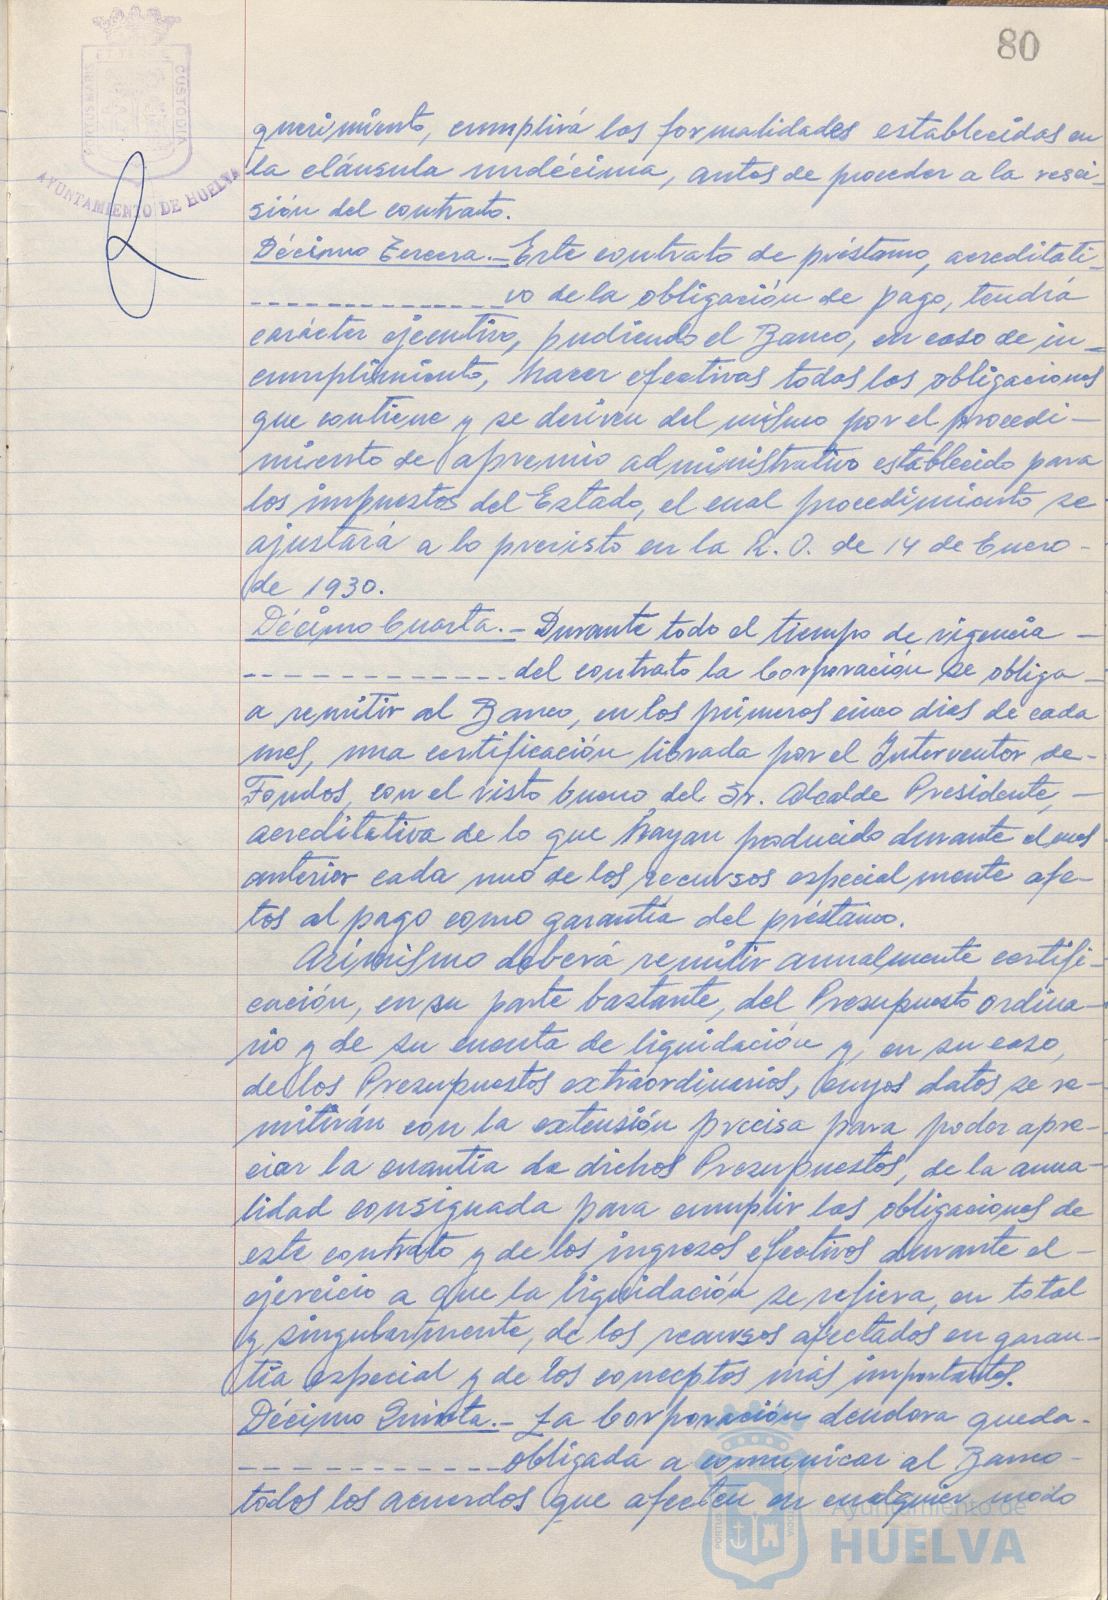 80
PORTUS MARIS
CUSTODIA
AYUNTAMIENTO DE HUELVA
querimiento, cumplirá las formalidades establecidas en
la cláusula undécima, antes de proceder a la resci-
sión del contrato.
Décimo Tercera.- Este contrato de préstamo, acreditati-
vo de la obligación de pago, tendrá
carácter ejecutivo, pudiendo el Banco, en caso de in-
cumplimiento, hacer efectivas todas las obligaciones
que contiene y se deriven del mismo por el procedi-
miento de apremio administrativo establecido para
los impuestos del Estado, el cual procedimiento se
ajustará a lo previsto en la R. O. de 14 de Enero -
de 1930.
Décimo Cuarta.- Durante todo el tiempo de vigencia -
del contrato la Corporación se obliga -
a remitir al Banco, en los primeros cinco dias de cada
mes, una certificación librada por el Interventor de-
Fondos, con el visto bueno del Sr. Alcalde Presidente, -
acreditativa de lo que hayan producido durante el mes
anterior cada uno de los recursos especialmente afe-
tos al pago como garantía del préstamo.
Asimismo deberá remitir anualmente certifi-
cación, en su parte bastante, del Presupuesto ordina-
rio y de su cuenta de liquidación y, en su caso,
de los Presupuestos extraordinarios, cuyos datos se re-
mitirán con la extensión precisa para poder apre-
ciar la cuantía de dichos Presupuestos, de la anua-
lidad consignada para cumplir las obligaciones de
este contrato y de los ingresos efectivos durante el -
ejercicio a que la liquidación se refiera, en total
y singularmente, de los recursos afectados en garan-
tía especial y de los conceptos más importantes.
Décimo Quinta.- La Corporación deudora queda-
obligada a comunicar al Banco -
todos los acuerdos que afecten en cualquier modo
PORTUS
CUSTODIA
Ayuntamiento de
HUELVA